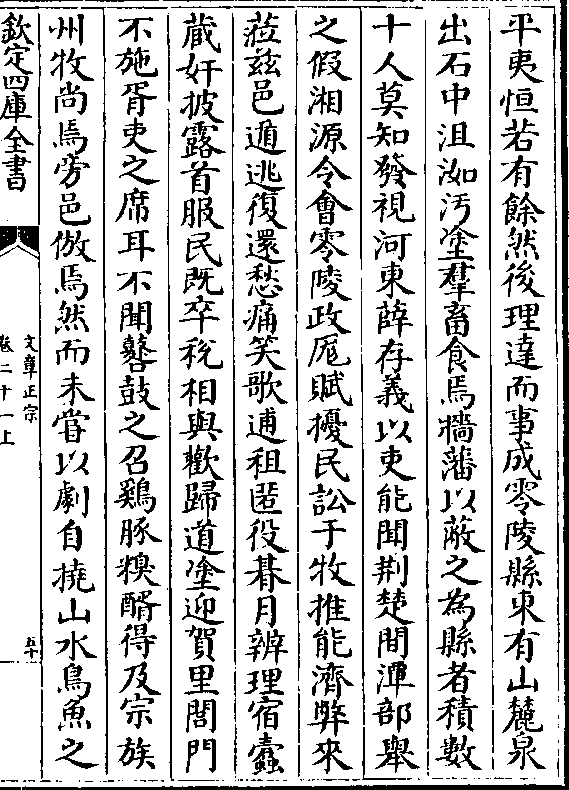 平夷恒若有餘然後理達而事成零陵縣東有山麓泉
出石中沮洳汚塗羣畜食焉墻藩以蔽之為縣者積數
十人莫知發視河東薛存義以吏能聞荆楚間潭部舉
之假湘源令會零陵政厖賦擾民訟于牧推能濟弊來
蒞兹邑遁逃復還愁痛笑歌逋租匿役朞月辨理宿蠧
蔵奸披露首服民既卒稅相與歡歸道塗迎賀里閭門
不施胥吏之席耳不聞鼛鼓之召鷄豚糗醑得及宗族
州牧尚焉旁邑倣焉然而未嘗以劇自撓山水鳥魚之
欽定四庫全書
文章正宗
卷二十一上
五十